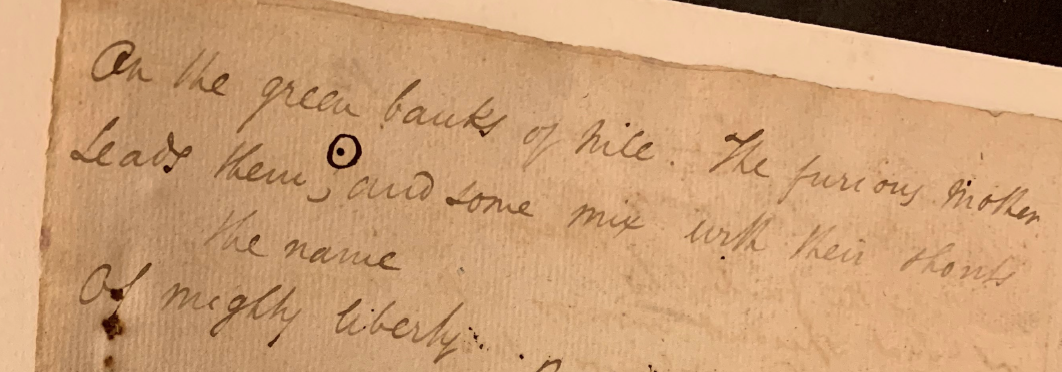 On the green banks of Nile. The furious Mother
Leads them; and some mix with their shouts
the name
Of mighty liberty.